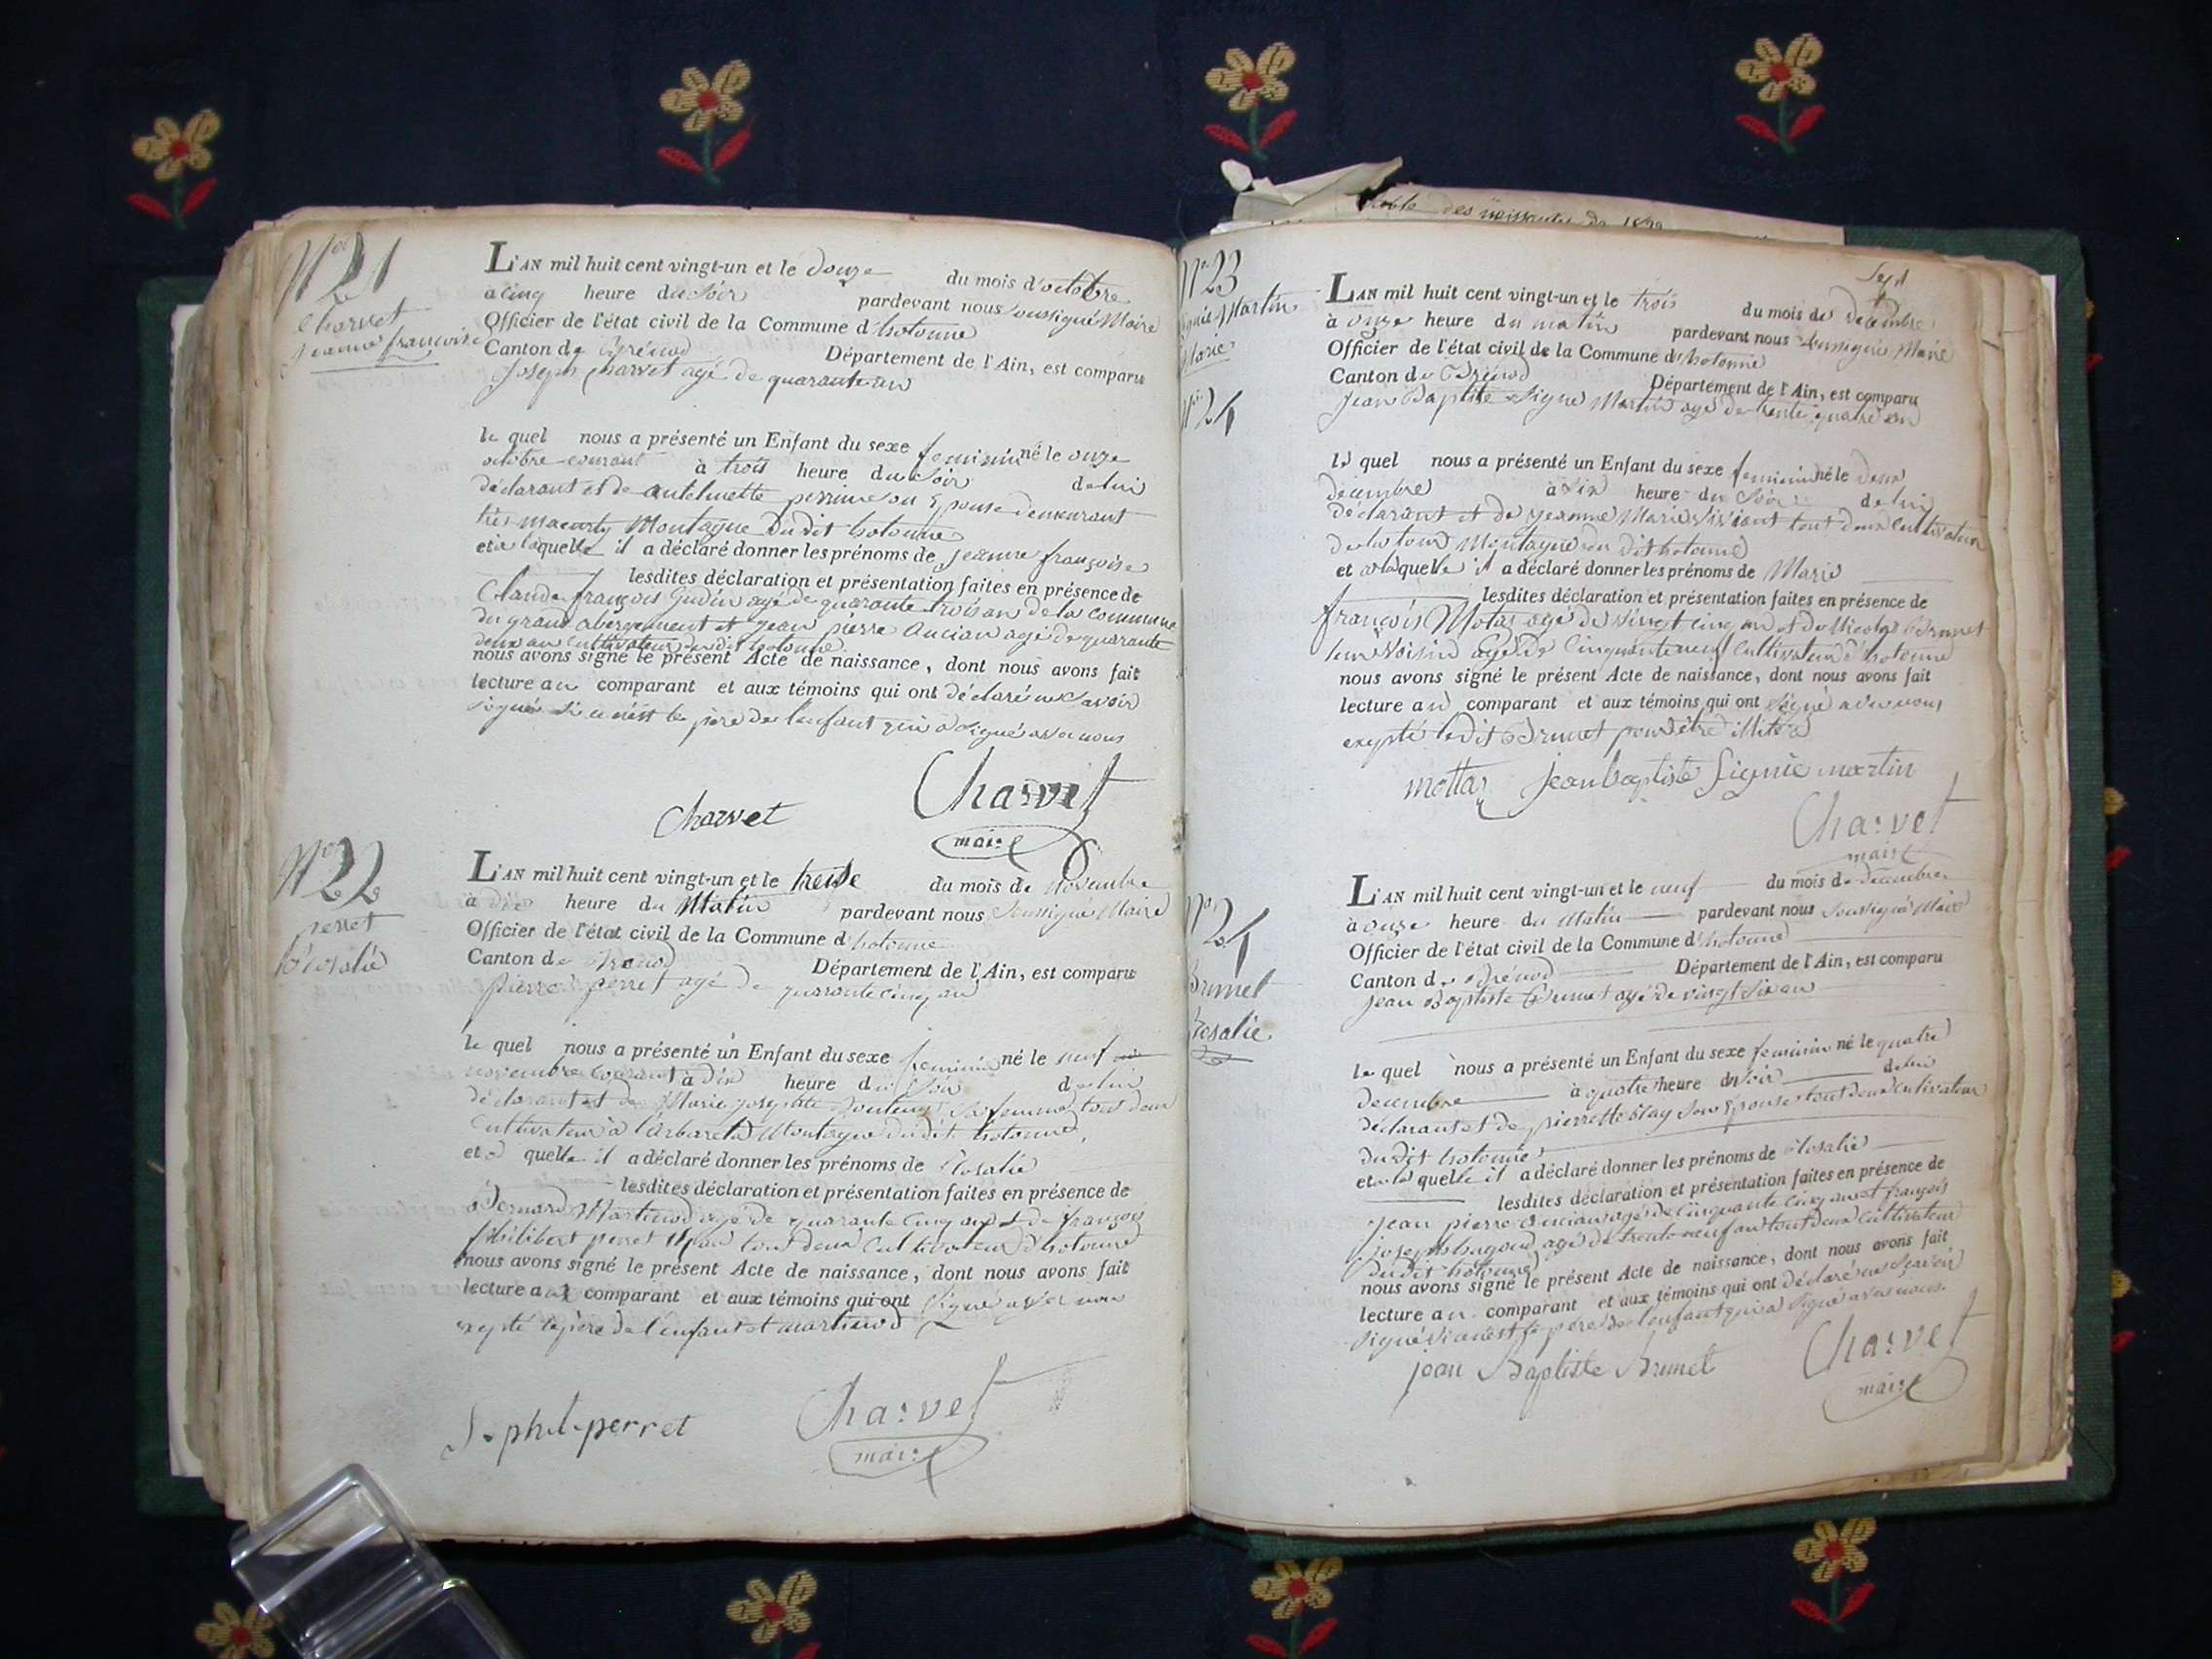 No 21
Charvet
jeanne françoise
L'AN mil huit cent vingt-un et le douze du mois d'octobre
à cinq heure du soir pardevant nous soussigné Maire
Officier de l'état civil de la Commune d'hotonne
Canton de Brénod Département de l'Ain, est comparu
Joseph Charvet agé de quarante an
le quel nous a présenté un Enfant du sexe feminin né le onze
octobre courant à trois heure du soir de lui
déclarant et de antelmette perrine son Epouse demeurant
Montagne du dit hotonne
et à laquelle il a déclaré donner les prénoms de jeanne françoise
lesdites déclaration et présentation faites en présence de
Claude françois Gudin agé de quarante trois an de la commune
du grand abergement et jean pierre Ancian agé de quarante
deux an cultivateur du dit hotonne
nous avons signé le présent Acte de naissance, dont nous avons fait
lecture au comparant et aux témoins qui ont déclaré ne savoir
signé si ce n'est le père de l'enfant qui a signé avec nous
Charvet
Charvet
maire
No 22
perret
Rosalie
L'AN mil huit cent vingt-un et le treise du mois de Novembre
à dix heure du Matin pardevant nous Soussigné Maire
Officier de l'état civil de la Commune d'hotonne
Canton de Brenod Département de l'Ain, est comparu
pierre perret agé de quarante cinq an
le quel nous a présenté un Enfant du sexe feminin né le neuf
novembre courant à dix heure du Soir de lui
déclarant et de Marie josephte sa femme tous deux
Cultivateur à Montagne du dit hotonne
et à quelle il a déclaré donner les prénoms de Rosalie
lesdites déclaration et présentation faites en présence de
Bernard Martinod agé de quarante cinq an et de françois
philibert perret tout deux Cultivateur d'hotonne
nous avons signé le présent Acte de naissance, dont nous avons fait
lecture aux comparant et aux témoins qui ont Signé avec nous
exepté le père de l'enfant et martinod
perret
Charvet
maire
table des naissantes de
No 23
Signie Martin
Marie
No 24
Sept
L'AN mil huit cent vingt-un et le trois du mois de décembre
à onze heure du matin pardevant nous soussignés Maire
Officier de l'état civil de la Commune d'hotonne
Canton de Brénod Département de l'Ain, est comparu
Jean Baptiste Signe Martin agé de trente quatre an
le quel nous a présenté un Enfant du sexe feminin né le deux
décembre à six heure du Soir de lui
déclarant et de jeanne Marie tout deux Cultivateur
Montagne du dit hotonne
et à laquelle il a déclaré donner les prénoms de Marie
lesdites déclaration et présentation faites en présence de
françois Motaz agé de vingt cinq an et de Nicolas Brunet
leur Voisin agé de Cinquante neuf Cultivateur d'hotonne
nous avons signé le présent Acte de naissance, dont nous avons fait
lecture au comparant et aux témoins qui ont signé avec nous
exepté le dit Brunet pour être
mottaz jean baptiste Signie martin
Charvet
maire
No 24
Brunet
Rosalie
L'AN mil huit cent vingt-un et le neuf du mois de décembre
à onze heure du Matin pardevant nous Soussigné Maire
Officier de l'état civil de la Commune d'hotonne
Canton de Brénod Département de l'Ain, est comparu
jean Baptiste Brunet agé de vingt six an
le quel nous a présenté un Enfant du sexe feminin né le quatre
decembre à quatre heure du soir de lui
déclarant et de pierrette blay son Epouse tout deux Cultivateur
du dit hotonne
et à la quelle il a déclaré donner les prénoms de Rosalie
lesdites déclaration et présentation faites en présence de
jean pierre Ancian agé de cinquante cinq an et françois
joseph agé de trente neuf an tout deux cultivateur
du dit hotonne
nous avons signé le présent Acte de naissance, dont nous avons fait
lecture au comparant et aux témoins qui ont déclaré ne savoir
signé si ce n'est le père de l'enfant qui a signé avec nous.
jean Baptiste Brunet
Charvet
maire